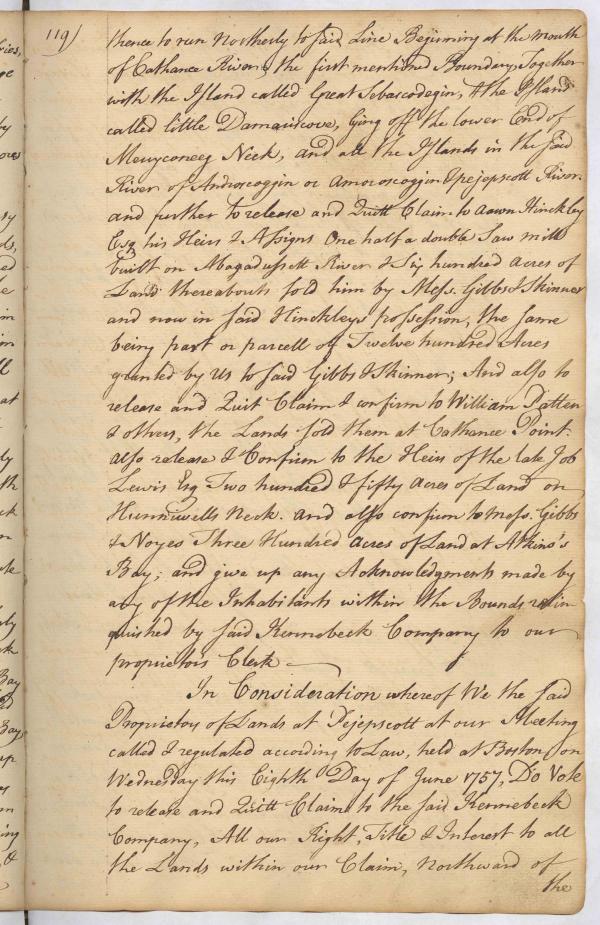 119)
thence to run Northerly to said Line Beginning at the mouth
of Cathance River, the first mentioned Boundary, Together
with the Island called Great Sebascodegin, & the Island
called little Damariscove, lying off the lower End of
Meryconeeg Neck, and all the Islands in the said
River of Androscoggin or Amoroscoggin & pejepscott River.
and further to release and Quitt Claim to Aaron Hinckley
Esq his Heirs & Assigns One half a double Saw mill
built on Abagadussett River & Six hundred Acres of
Land thereabouts sold him by Mess. Gibbs & Skinner
and now in said Hinckleys possession, the same
being part or parcell of Twelve hundred Acres
granted by Us to said Gibbs & Skinner; And also to
release and Quit Claim & confirm to William Patten
& others, the Lands sold them at Cathance Point.
also release & Confirm to the Heirs of the late Job
Lewis Esq Two hundred & fifty Acres of Land on
Hunniwells Neck. and also confirm to Mess. Gibbs
& Noyes Three Hundred Acres of Land at Atkins's
Bay; and give up any Acknowledgments made by
any of the Inhabitants within the Bounds relin
quished by said Kennebeck Company to our
proprietors Clerk
In Consideration whereof We the said
Proprietors of Lands at Pejepscott at our Meeting
called & regulated according to Law, held at Boston, on
Wednesday this Eighth Day of June 1757, Do Vote
to release and Quitt Claim to the said Kennebeck
Company, All our Right, Title & Interest to all
the Lands within our Claim, Northward of
the